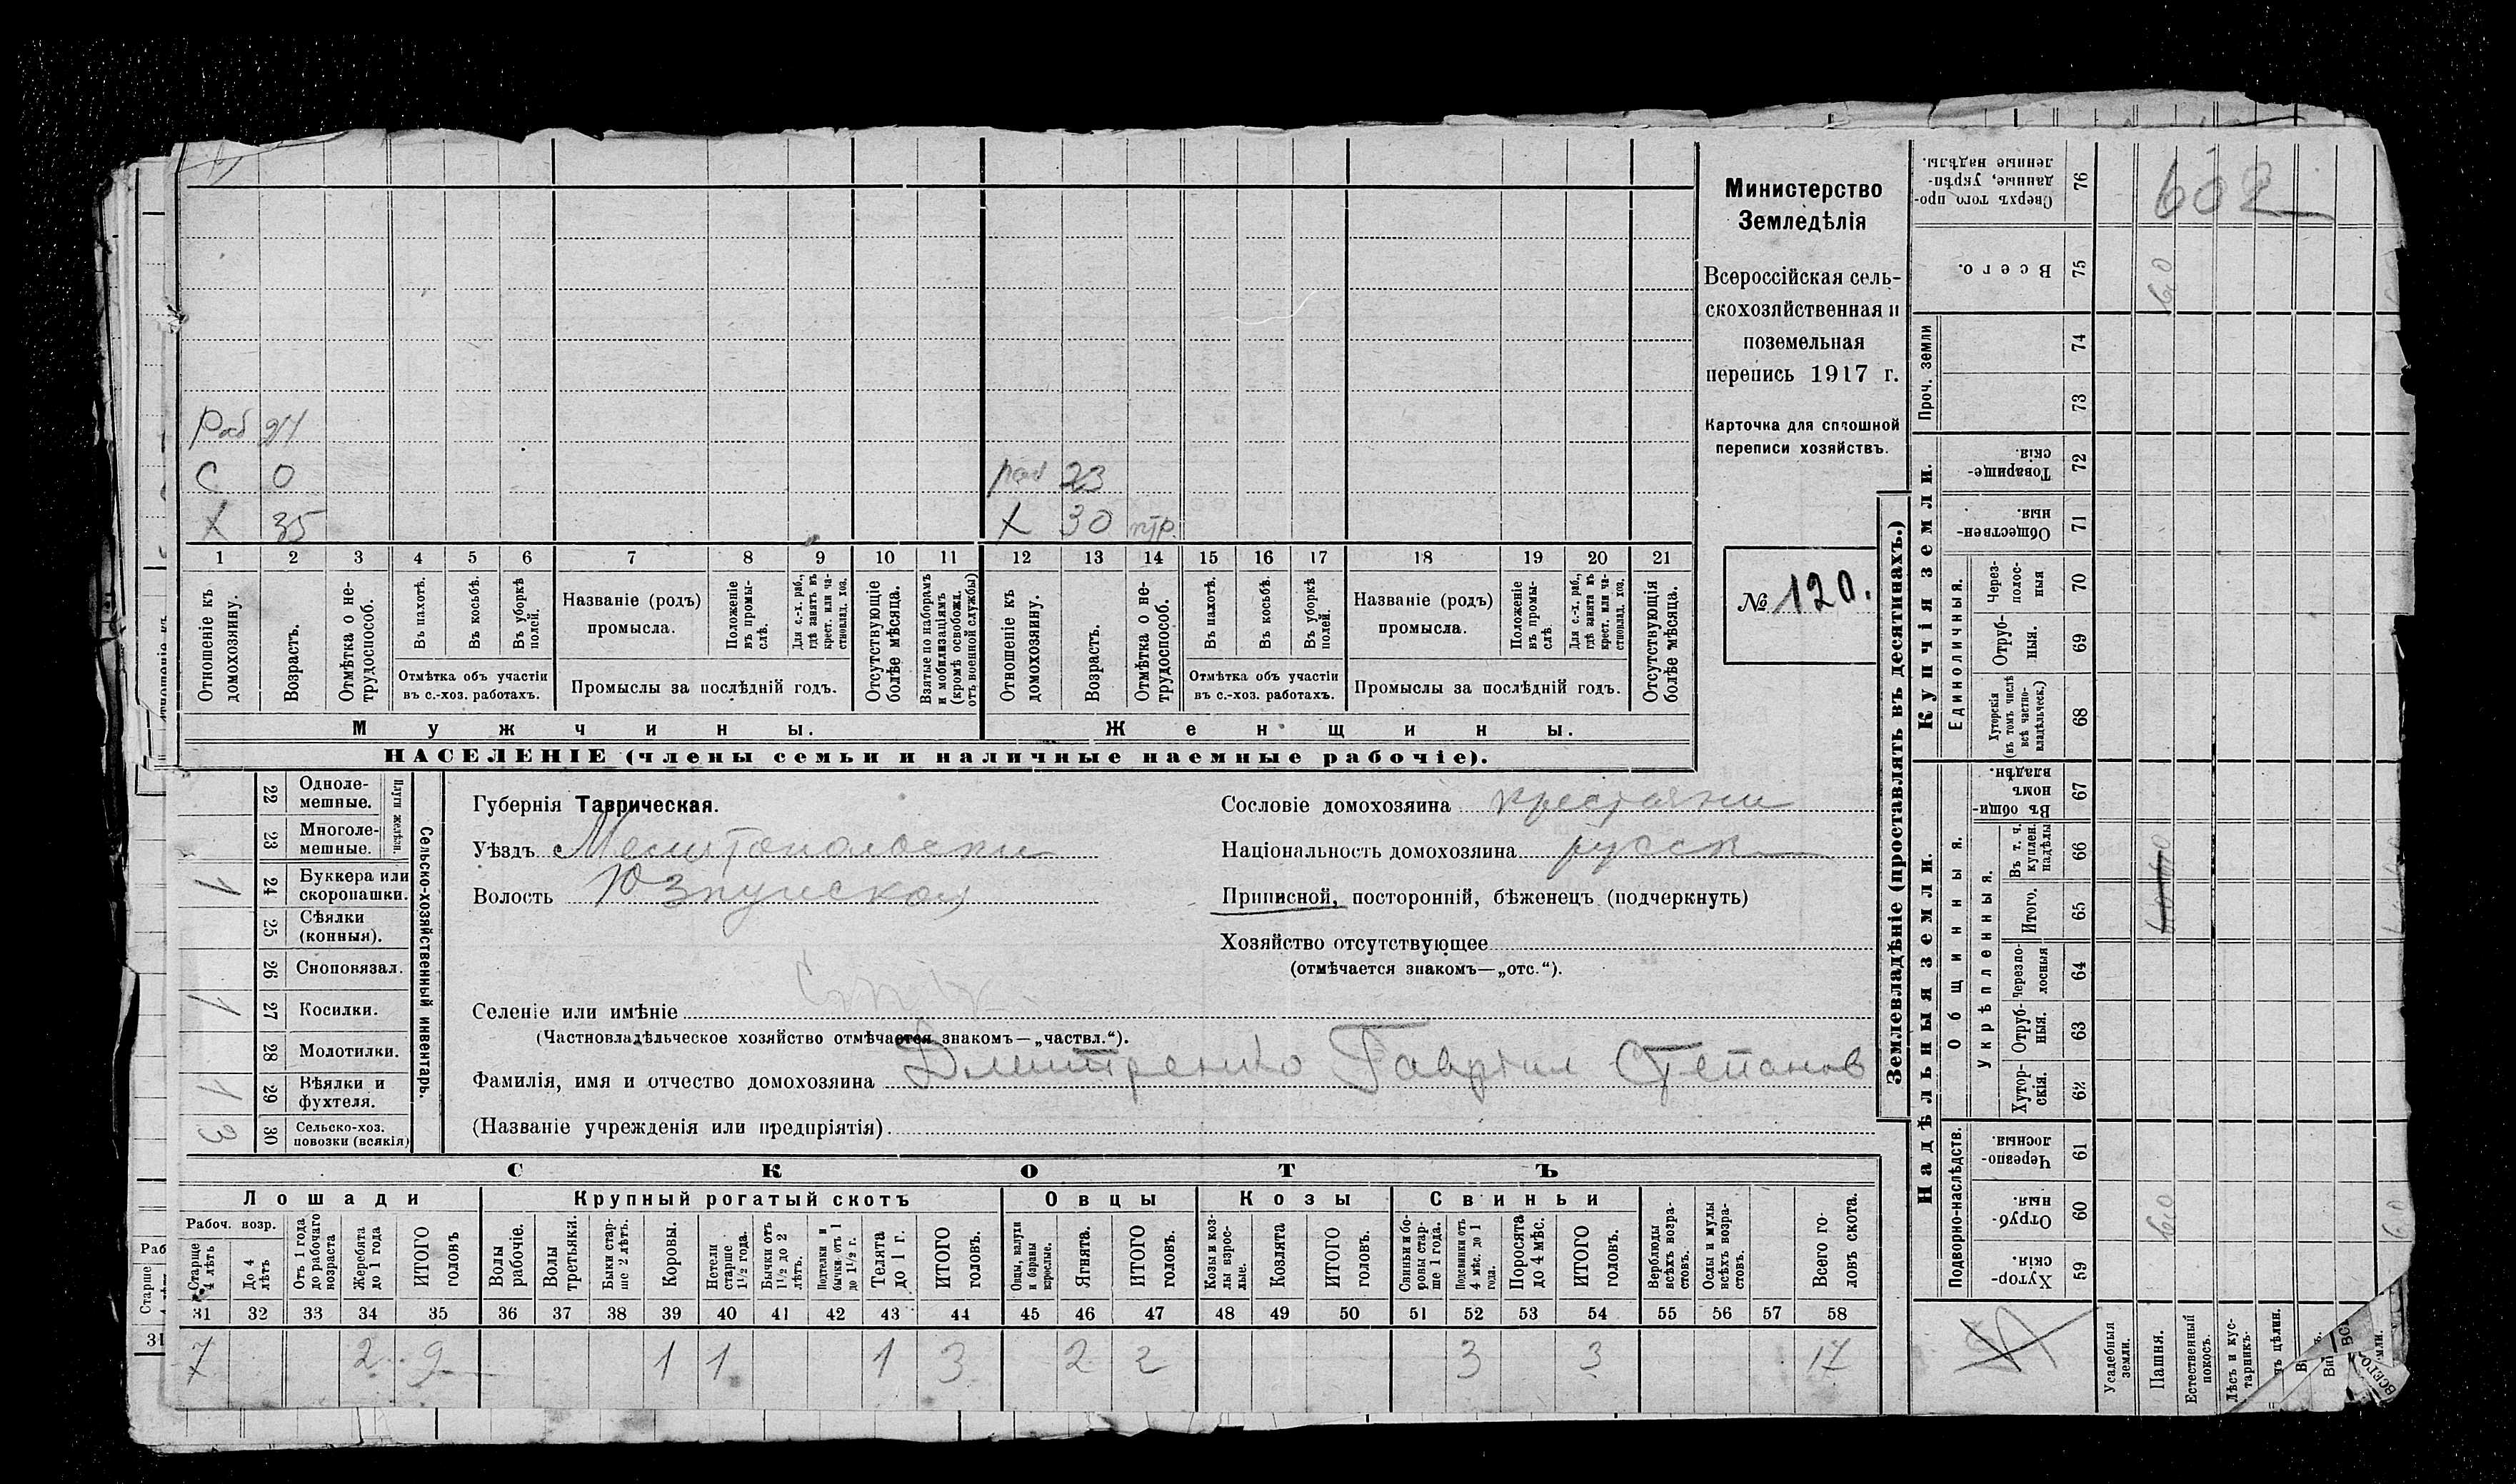 Раб 24
С 0
Х 35
раб 23
Х 30 нтр.
1 2 3 4 5 6 7 8 9 10 11 12 13 14 15 16 17 18 19 20 21
Отношеніе къ домохозяину.
Возрастъ.
Отмѣтка о не-
трудоспособ.
Въ пахотѣ.
Въ косьбѣ.
Въ уборкѣ
полей.
Отмѣтка объ участіи
въ с.-хоз. работахъ.
Названіе (родъ)
промысла.
Положеніе
въ промы-
слѣ.
Для с.-х. раб.,
гдѣ занятъ въ
крест. или ча-
стновлад. хоз.
Промыслы за послѣдній годъ.
Отсутствующіе
болѣе мѣсяца.
Взятые по наборамъ
и мобилизаціямъ
(кромѣ освобожд.
отъ военной службы)
Отношеніе къ
домохозяину.
Возрастъ.
Отмѣтка о не-
трудоспособ.
Въ пахотѣ.
Въ косьбѣ.
Въ уборкѣ
полей.
Отмѣтка объ участіи
въ с.-хоз. работахъ.
Названіе (родъ)
промысла.
Положеніе
въ промы-
слѣ.
Для с.-х. раб.,
гдѣ занята въ
крест. или ча-
стновлад. хоз.
Промыслы за послѣдній годъ.
Отсутствующія
болѣе мѣсяца.
Мужчины.
Женщины.
НАСЕЛЕНІЕ (члены семьи и наличные наемные рабочіе).
Министерство
Земледѣлія
Всероссійская сель-
скохозяйственная и
поземельная
перепись 1917 г.
Карточка для сплошной
переписи хозяйствъ.
№ 120.
Сельско-хозяйственный инвентарь.
Плуги желѣзн.
22 Одноле-
мешные.
23 Многоле-
мешные.
1 24 Буккера или
скоропашки.
25 Сѣялки
(конныя).
26 Сноповязал.
1 27 Косилки.
28 Молотилки.
1 29 Вѣялки и
фухтеля.
3 30 Сельско-хоз.
повозки (всякія)
Губернія Таврическая.
Уѣздъ Мелитопольски
Волость Юзкуйская
Селеніе или имѣніе
(Частновладѣльческое хозяйство отмѣчается знакомъ—„частвл.“).
Фамилія, имя и отчество домохозяина Дмитренко Гавріил Степанов
(Названіе учрежденія или предпріятія)
Сословіе домохозяина крестьяни
Національность домохозяина русск
Приписной, посторонній, бѣженецъ (подчеркнуть)
Хозяйство отсутствующее
(отмѣчается знакомъ—„отс.“).
СКОТЪ
Лошади
Крупный рогатый скотъ
Овцы
Козы
Свиньи
Рабоч. возр.
Старше
4 лѣтъ
До 4
лѣтъ
Отъ 1 года
до рабочаго
возраста
Жеребята
до 1 года
ИТОГО
головъ
Волы
рабочіе.
Волы
третьяки.
Быки стар-
ше 2 лѣтъ.
Коровы.
Нетели
старше
1½ года.
Бычки отъ
1½ до 2
лѣтъ.
Подтелки и
бычки отъ 1
до 1½ г.
Телята
до 1 г.
ИТОГО
головъ.
Овцы, валухи
и бараны
взрослые.
Ягнята.
ИТОГО
головъ.
Козы и коз-
лы взрос-
лые.
Козлята
ИТОГО
головъ.
Свиньи и бо-
ровы стар-
ше 1 года.
Подсвинки отъ
4 мѣс. до 1
года.
Поросята
до 4 мѣс.
ИТОГО
головъ.
Верблюды
всѣхъ возра-
стовъ.
Ослы и мулы
всѣхъ возра-
стовъ.
Всего го-
ловъ скота.
31 32 33 34 35 36 37 38 39 40 41 42 43 44 45 46 47 48 49 50 51 52 53 54 55 56 57 58
7 2 9 1 1 1 3 2 2 3 3 17
Землевладѣніе (проставлять въ десятинахъ.)
Купчія земли.
Надѣльныя земли.
Сверхъ того про-
данные, укрѣп-
ленные надѣлы.
76
602
Всего.
75
6,0
Проч. земли
74
73
Товарище-
скія.
72
Обществен-
ныя.
71
Единоличныя.
Через-
полос-
ныя
70
Отруб-
ныя.
69
Хуторскія
(въ томъ числѣ
всѣ частно-
владѣльческ.)
68
Общинныя.
Въ общи-
номъ
владѣн.
67
Укрѣпленныя.
Въ т. ч.
куплен.
надѣлы
66
Итого.
65
Черезпо-
лосныя
64
Отруб-
ныя.
63
Хутор-
скія.
62
Подворно-наслѣдств.
Черезпо-
лосныя.
61
Отруб-
ныя.
60
6,0
6,0
Хутор-
скія.
59
Усадебныя
земли.
Пашня.
Естественный
покосъ.
Лѣсъ и кус-
тарникъ.
Раб
Старше
31